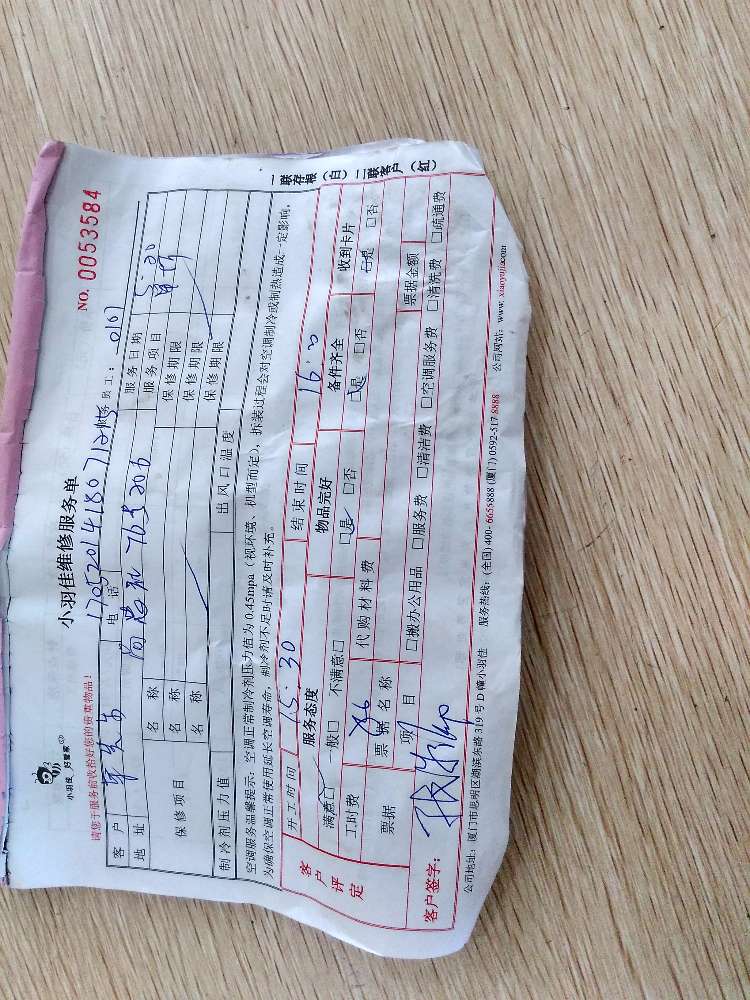 小羽佳维修服务单
NO. 0053584
小羽佳 好管家
请您于服务前收拾好您的贵重物品!
服务员工:
客户
电话 17052014180712415
服务日期
地址
765206
服务项目
保修项目
名称
保修期限
名称
保修期限
名称
保修期限
制冷剂压力值
出风口温度
空调服务温馨提示:空调正常制冷剂压力值为0.45mpa(视环境、机型而定),拆装过程会对空调制冷或制热造成一定影响,
为确保空调正常使用延长空调寿命,制冷剂不足时请及时补充。
客户评定
开工时间 15:30
结束时间 16:00
服务态度
物品完好
备件齐全
收到卡片
满意□ 一般□ 不满意□
□是 □否
□是 □否
□是 □否
工时费
代购材料费
票据
票据名称
票据金额
项目
□搬办公用品 □服务费 □清洁费 □空调服务费 □清洗费 □疏通费
客户签字:
公司地址:厦门市思明区湖滨东路319号D幢小羽佳 服务热线:(全国)400-6655888 (厦门)0592-517 8888 公司网站:www.xiaoyujia.com
一联存根(白)二联客户(红)